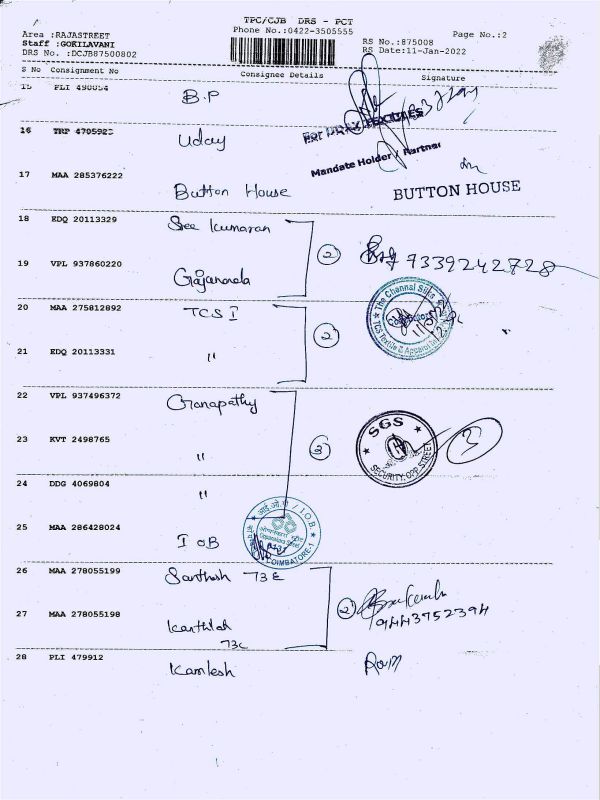 TPC/CJB DRS - PCT
Area :RAJASTREET
Phone No.:0422-3505555
Page No.:2
Staff :GOKILAVANI
RS No.:875008
DRS No. :DCJB87500802
RS Date:11-Jan-2022
S No Consignment No Consignee Details Signature
15 PLI 490054 B.P
16 TRP 4705923 Uday
Mandate Holder / Partner
17 MAA 285376222 Button House
BUTTON HOUSE
18 EDQ 20113329 Sree Kumaran
2 7339242728
19 VPL 937860220 Gajananda
20 MAA 275812892 TCS I
2
The Chennai Silks
TCS Textile & Apparel
21 EDQ 20113331 "
22 VPL 937496372 Ganapathy
23 KVT 2498765 "
SGS
SECURITY OPP STREET
3
24 DDG 4069804 "
25 MAA 286428024 IOB
आई.ओ.बी / I.O.B.
COIMBATORE-1
26 MAA 278055199 Santhosh 73E
2
9443752394
27 MAA 278055198 Kanthilal
73C
28 PLI 479912 Kamlesh Ram